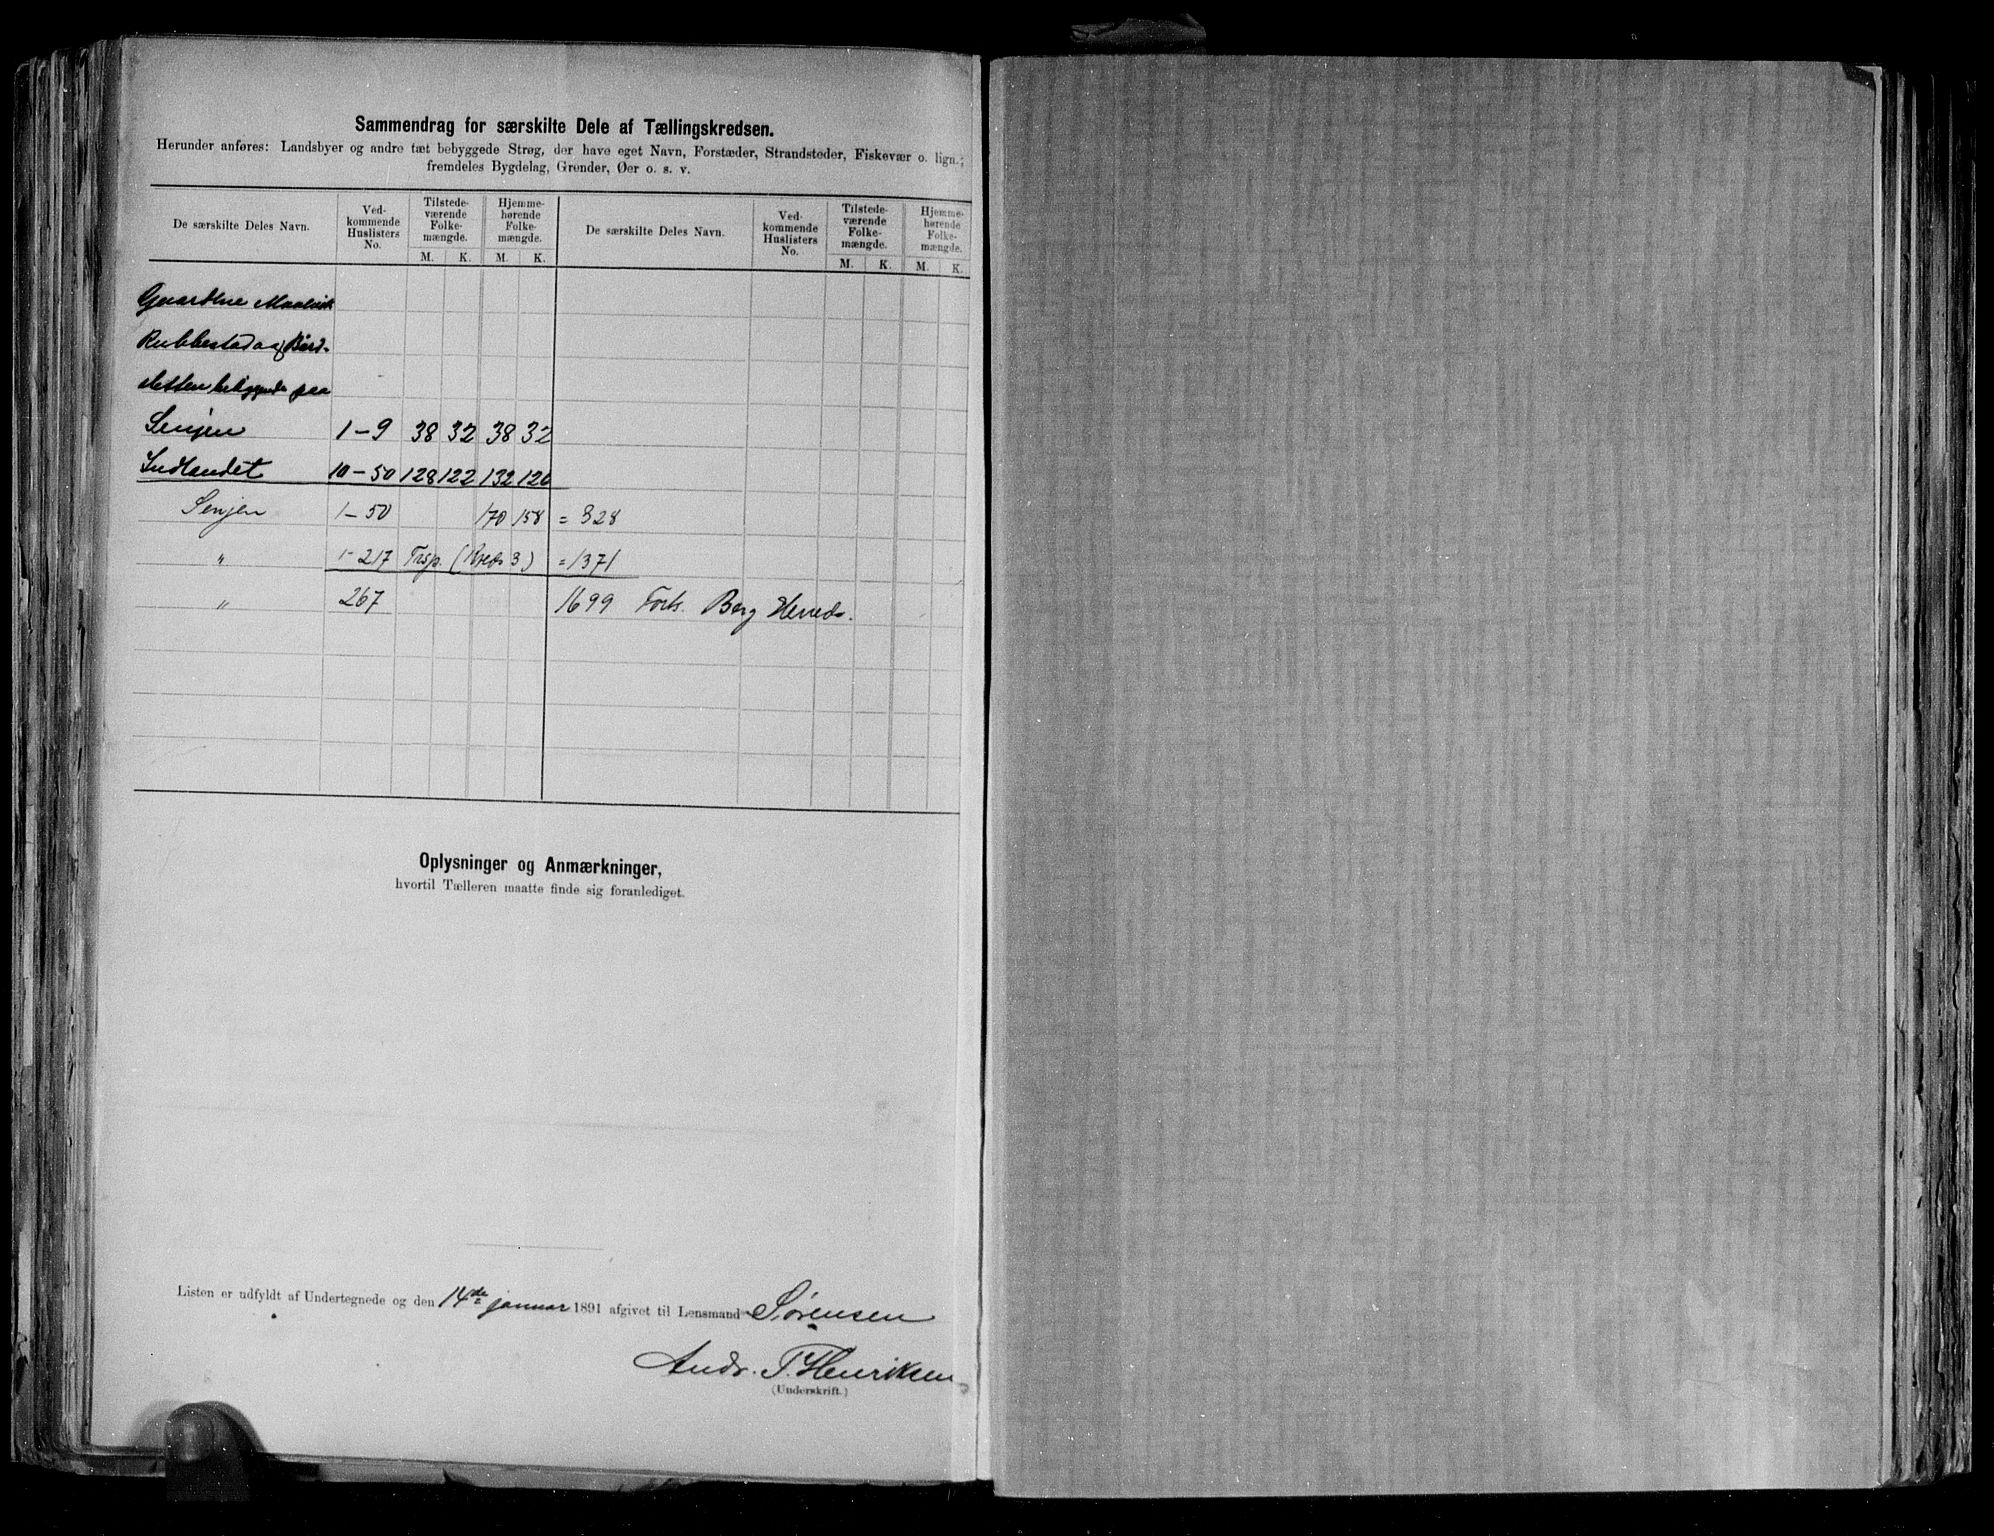 Sammendrag for særskilte Dele af Tællingskredsen.
Herunder anføres: Landsbyer og andre tæt bebyggede Strøg, der have eget Navn, Forstæder, Strandsteder, Fiskevær o. lign.;
fremdeles Bygdelag, Grender, Øer o. s. v.
De særskilte Deles Navn. Ved-kommende Huslisters No. Tilstede-værende Folke-mængde. M. K. Hjemme-hørende Folke-mængde. M. K. De særskilte Deles Navn. Ved-kommende Huslisters No. Tilstede-værende Folke-mængde. M. K. Hjemme-hørende Folke-mængde. M. K.
Gaardene
Rubbestad og
sletten paa
Senjen 1-9 38 32 38 32
Indlandet 10-50 128 122 132 126
Senjen 1-50 170 158 = 328
" 1-217 Trsp. (Kreds 3) = 1371
" 267 1699 Forts. Berg Herred.
Oplysninger og Anmærkninger,
hvortil Tælleren maatte finde sig foranlediget.
Listen er udfyldt af Undertegnede og den 14de januar 1891 afgivet til Lensmand Sørensen
Andr. P. Henriksen
(Underskrift.)